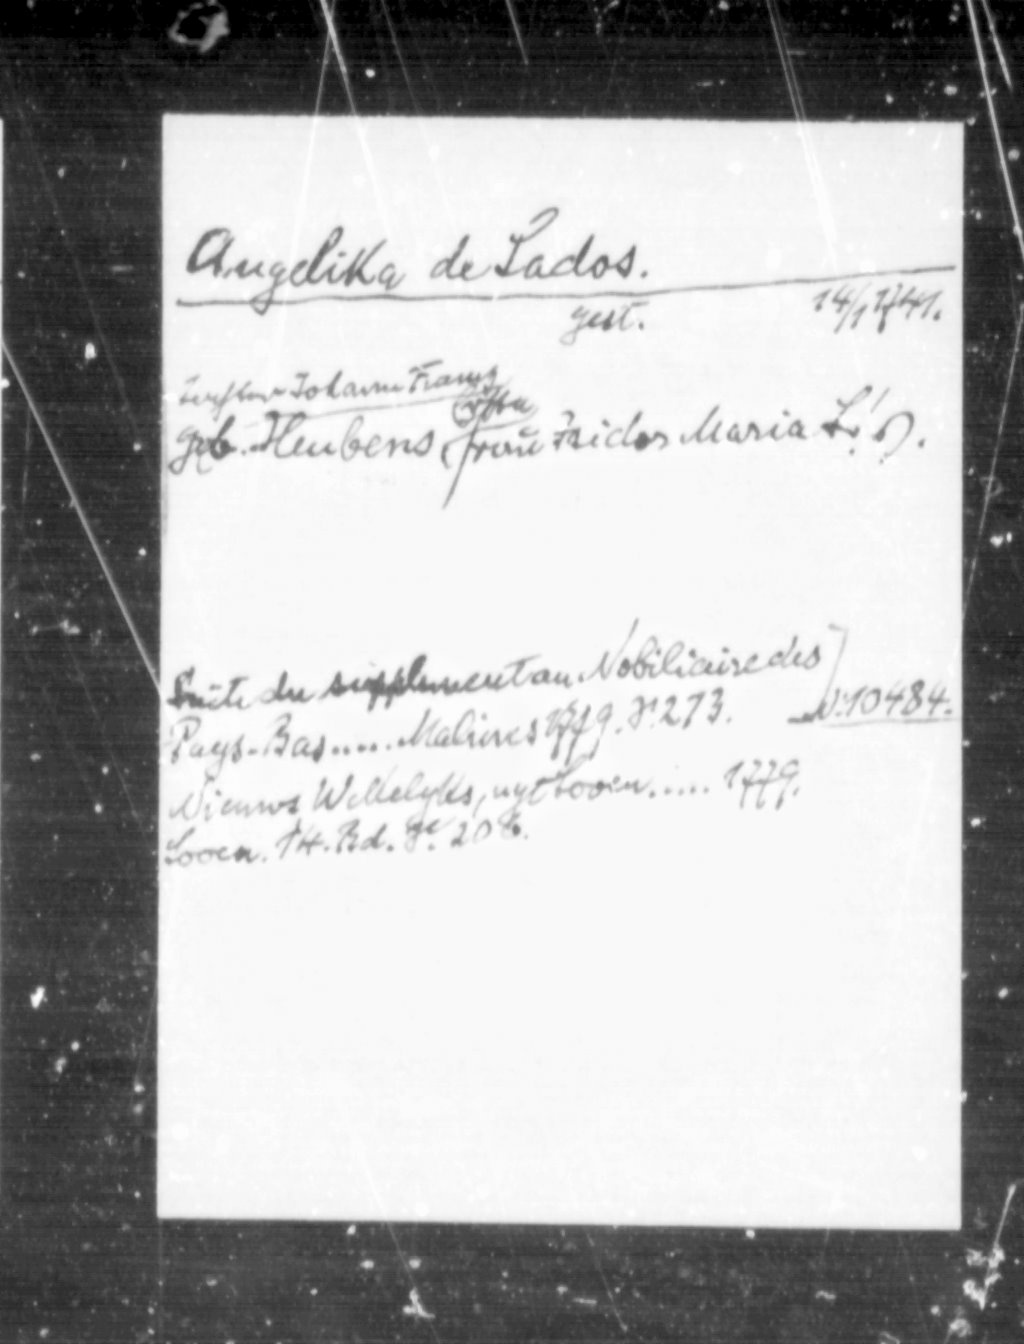 Angelika de Lados.
gest. 14/1 1741.
Tochter Johann Franz
geb. Heubens (frau Isidor Maria L.)
Suite du supplement au Nobiliaire des
Pays-Bas..... Malines 1779. S. 273. N. 10484.
Nieuws Wekelyks, uyt Loven..... 1779.
Loven. 14. Bd. 208.